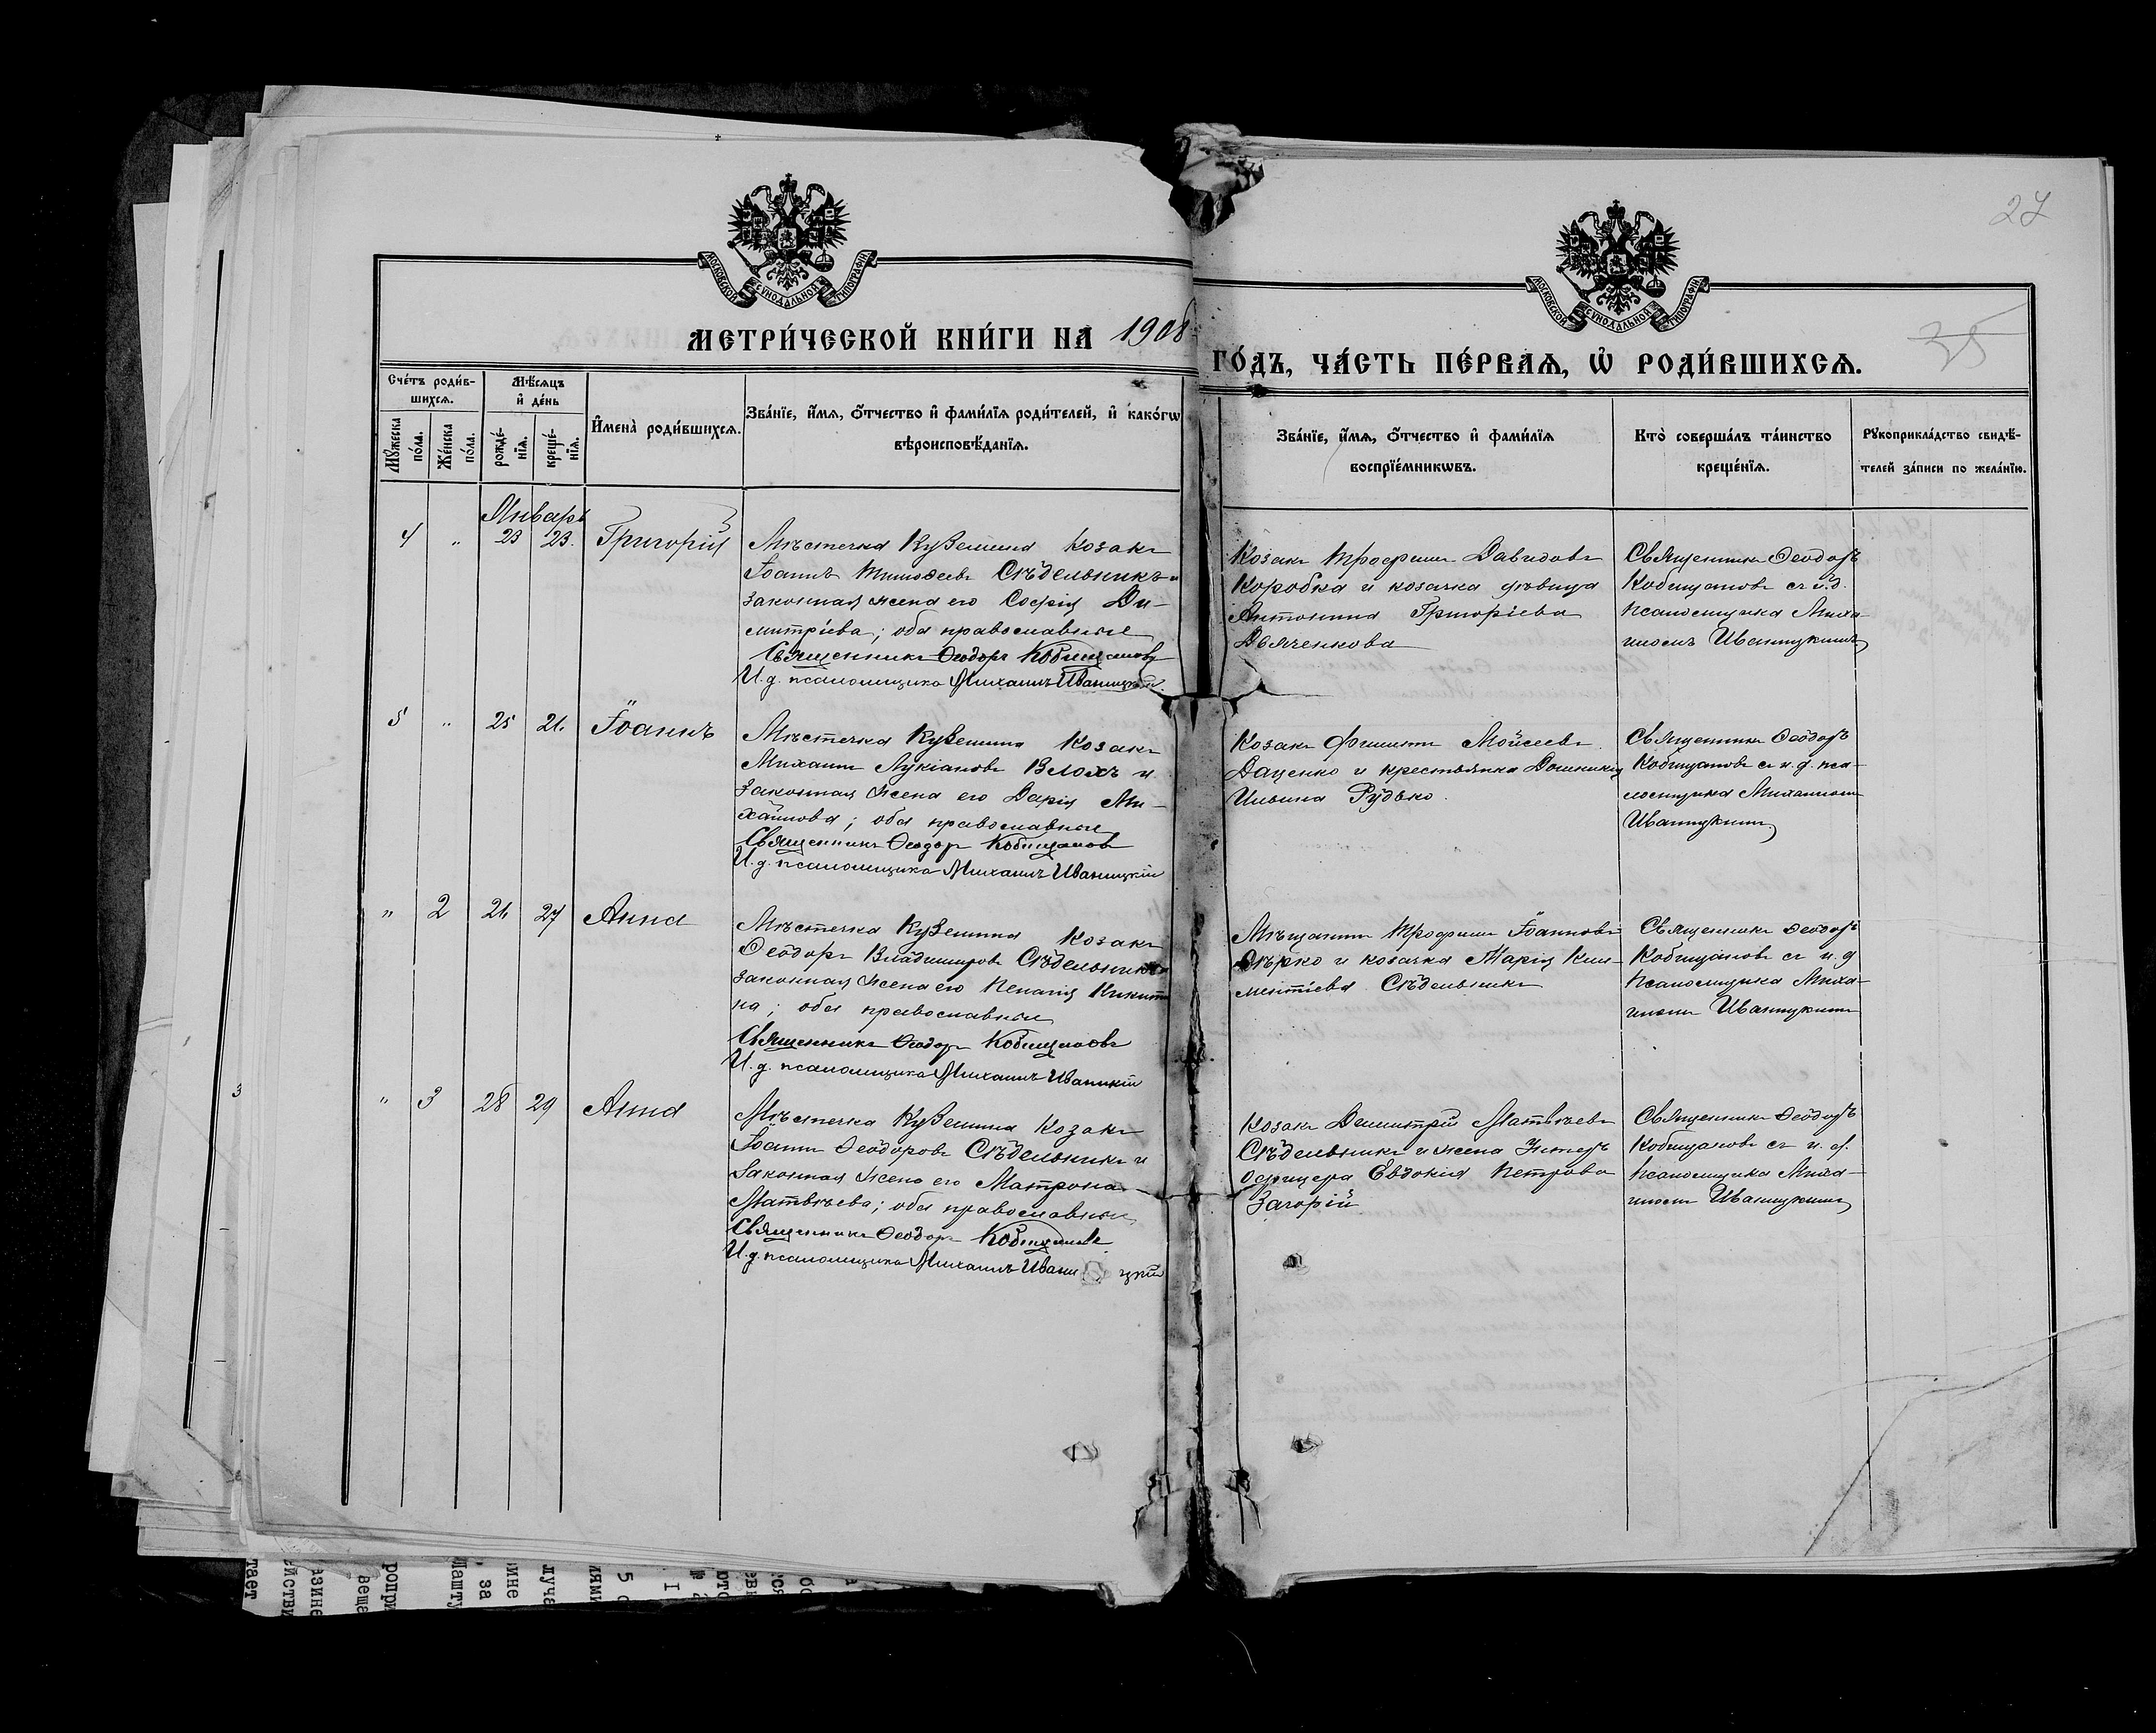 27
МОСКОВСКОЙ СѴНОДАЛЬНОЙ ТИПОГРАФІИ
МОСКОВСКОЙ СѴНОДАЛЬНОЙ ТИПОГРАФІИ
35
МЕТРИ́ЧЕСКОЙ КНИ́ГИ НА 1908
ГО́ДЪ, ЧА́СТЬ ПЕ́РВАѦ, Ѡ҆ РОДИ́ВШИХСѦ.
Сче́тъ роди́в-
шихсѧ.
Мѣ́сѧцъ
и҆ де́нь
Мꙋ́жеска по́ла.
Же́нска по́ла.
рожде́-
нїѧ.
креще́-
нїѧ.
И҆мена̀ роди́вшихсѧ.
Зва́нїе, и҆́мѧ, ѻ҆́тчество и҆ фами́лїѧ роди́телей, и҆ како́гѡ
вѣроисповѣ́данїѧ.
Зва́нїе, и҆́мѧ, ѻ҆́тчество и҆ фами́лїѧ
воспрїе́мникѡвъ.
Кто̀ соверша́лъ та́инство
креще́нїѧ.
Рꙋкоприкла́дство свидѣ́-
телей за́писи по жела́нїю.
Январь
4 " 23 23. Григорій
Мѣстечка Куземина Козакъ
Іоаннъ Тимоѳеевъ Сѣдельникъ и
законная жена его Софія Ди-
митріева; оба православные
Священникъ Ѳеодоръ Кобищановъ
И. д. псаломщика Михаилъ Иваницкій
Козакъ Трофимъ Давидовъ
Коробка и козачка дѣвица
Антонина Григоріева
Дьяченкова
Священникъ Ѳеодоръ
Кобищановъ съ и.д.
псаломщика Миха-
иломъ Иваницкимъ
5 " 25 26. Іоаннъ
Мѣстечка Куземина Козакъ
Михаилъ Лукіановъ Влохъ и
законная жена его Дарія Ми-
хайлова; оба православные
Священникъ Ѳеодоръ Кобищановъ
И. д. псаломщика Михаилъ Иваницкій
Козакъ Филиппъ Моисеевъ
Даценко и крестьянка Домникія
Ильина Рудько.
Священникъ Ѳеодоръ
Кобищановъ съ и. д. пса-
ломщика Михаиломъ
Иваницкимъ
" 2 26 27 Анна
Мѣстечка Куземина Козакъ
Ѳеодоръ Владиміровъ Сѣдельникъ
законная жена его Пелагія Никити
на; оба православные
Священникъ Ѳеодоръ Кобищановъ
И. д. псаломщика Михаилъ Иваницкій
Мѣщанинъ Трофимъ Іоанновъ
и козачка Марія Кли-
ментіева Сѣдельникъ
Священникъ Ѳеодоръ
Кобищановъ съ и. д
псаломщика Миха-
иломъ Иваницкимъ
3
" 3 28 29 Анна
Мѣстечка Куземина Козакъ
Іоаннъ Ѳеодоровъ Сѣдельникъ и
законная жена его Матрона
Матвѣева; оба православные
Священникъ Ѳеодоръ Кобищановъ
И. д. псаломщика Михаилъ Иваницкій
Козакъ Димитрій Матвѣевъ
Сѣдельникъ и жена Унтеръ
офицера Евдокія Петрова
Загорій
Священникъ Ѳеодоръ
Кобищановъ съ и. д.
псаломщика Миха-
иломъ Иваницкимъ